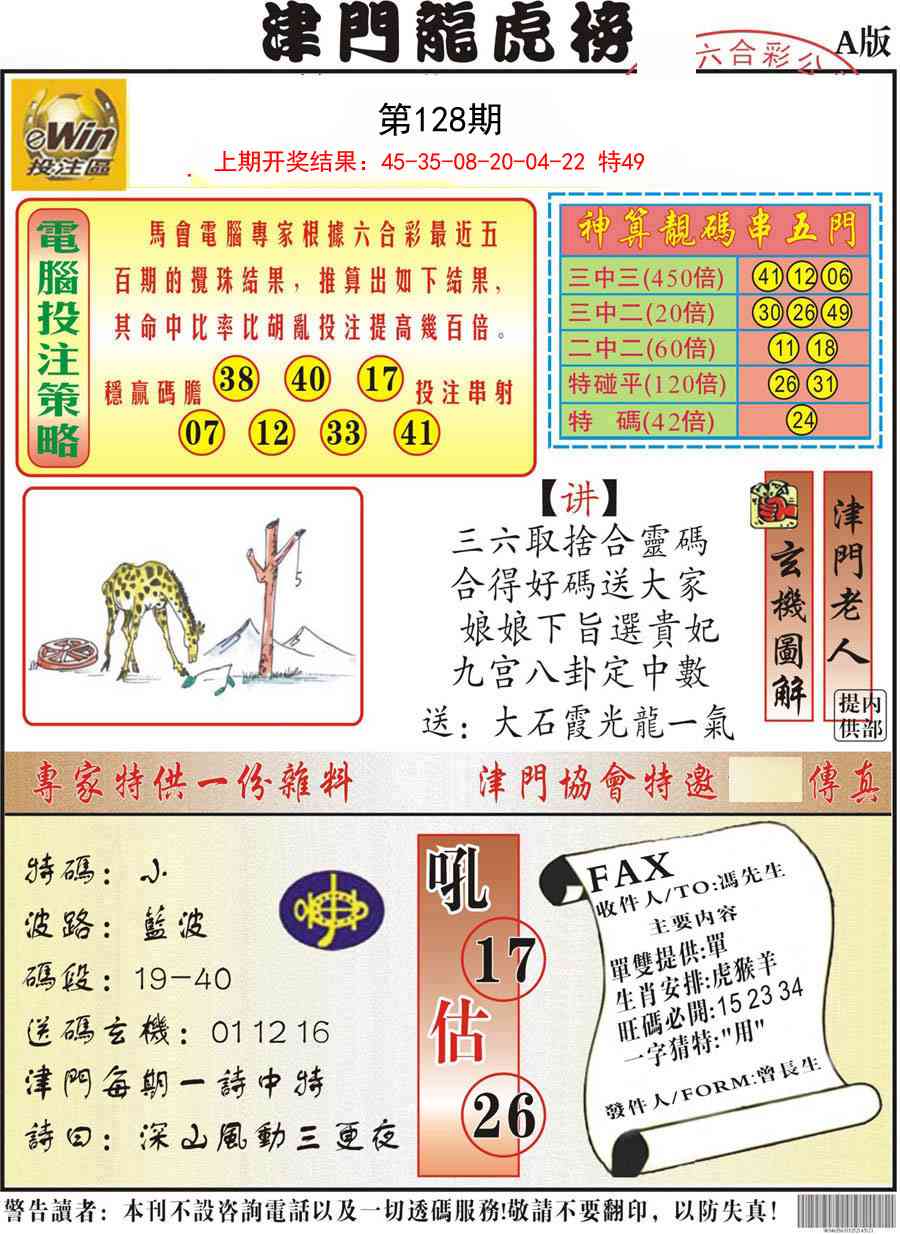 津門龍虎榜
六合彩公
A版
eWin
投注區
第128期
上期开奖结果：45-35-08-20-04-22 特49
電腦投注策略
馬會電腦專家根據六合彩最近五
百期的攪珠結果，推算出如下結果，
其命中比率比胡亂投注提高幾百倍。
穩贏碼膽 38 40 17 投注串射
07 12 33 41
神算靚碼串五門
三中三(450倍) 41 12 06
三中二(20倍) 30 26 49
二中二(60倍) 11 18
特碰平(120倍) 26 31
特 碼(42倍) 24
5
【讲】
三六取捨合靈碼
合得好碼送大家
娘娘下旨選貴妃
九宮八卦定中數
送：大石霞光龍一氣
玄機圖解
津門老人
内部提供
專家特供一份雜料
津門協會特邀
傳真
特碼：小
波路：藍波
碼段：19-40
送碼玄機：01 12 16
津門每期一詩中特
詩曰：深山風動三更夜
吼
17
估
26
FAX
收件人/TO:馮先生
主要内容
單雙提供:單
生肖安排:虎猴羊
旺碼必開:15 23 34
一字猜特:"用"
發件人/FORM:曾長生
警告讀者：本刊不設咨詢電話以及一切透碼服務!敬請不要翻印，以防失真！